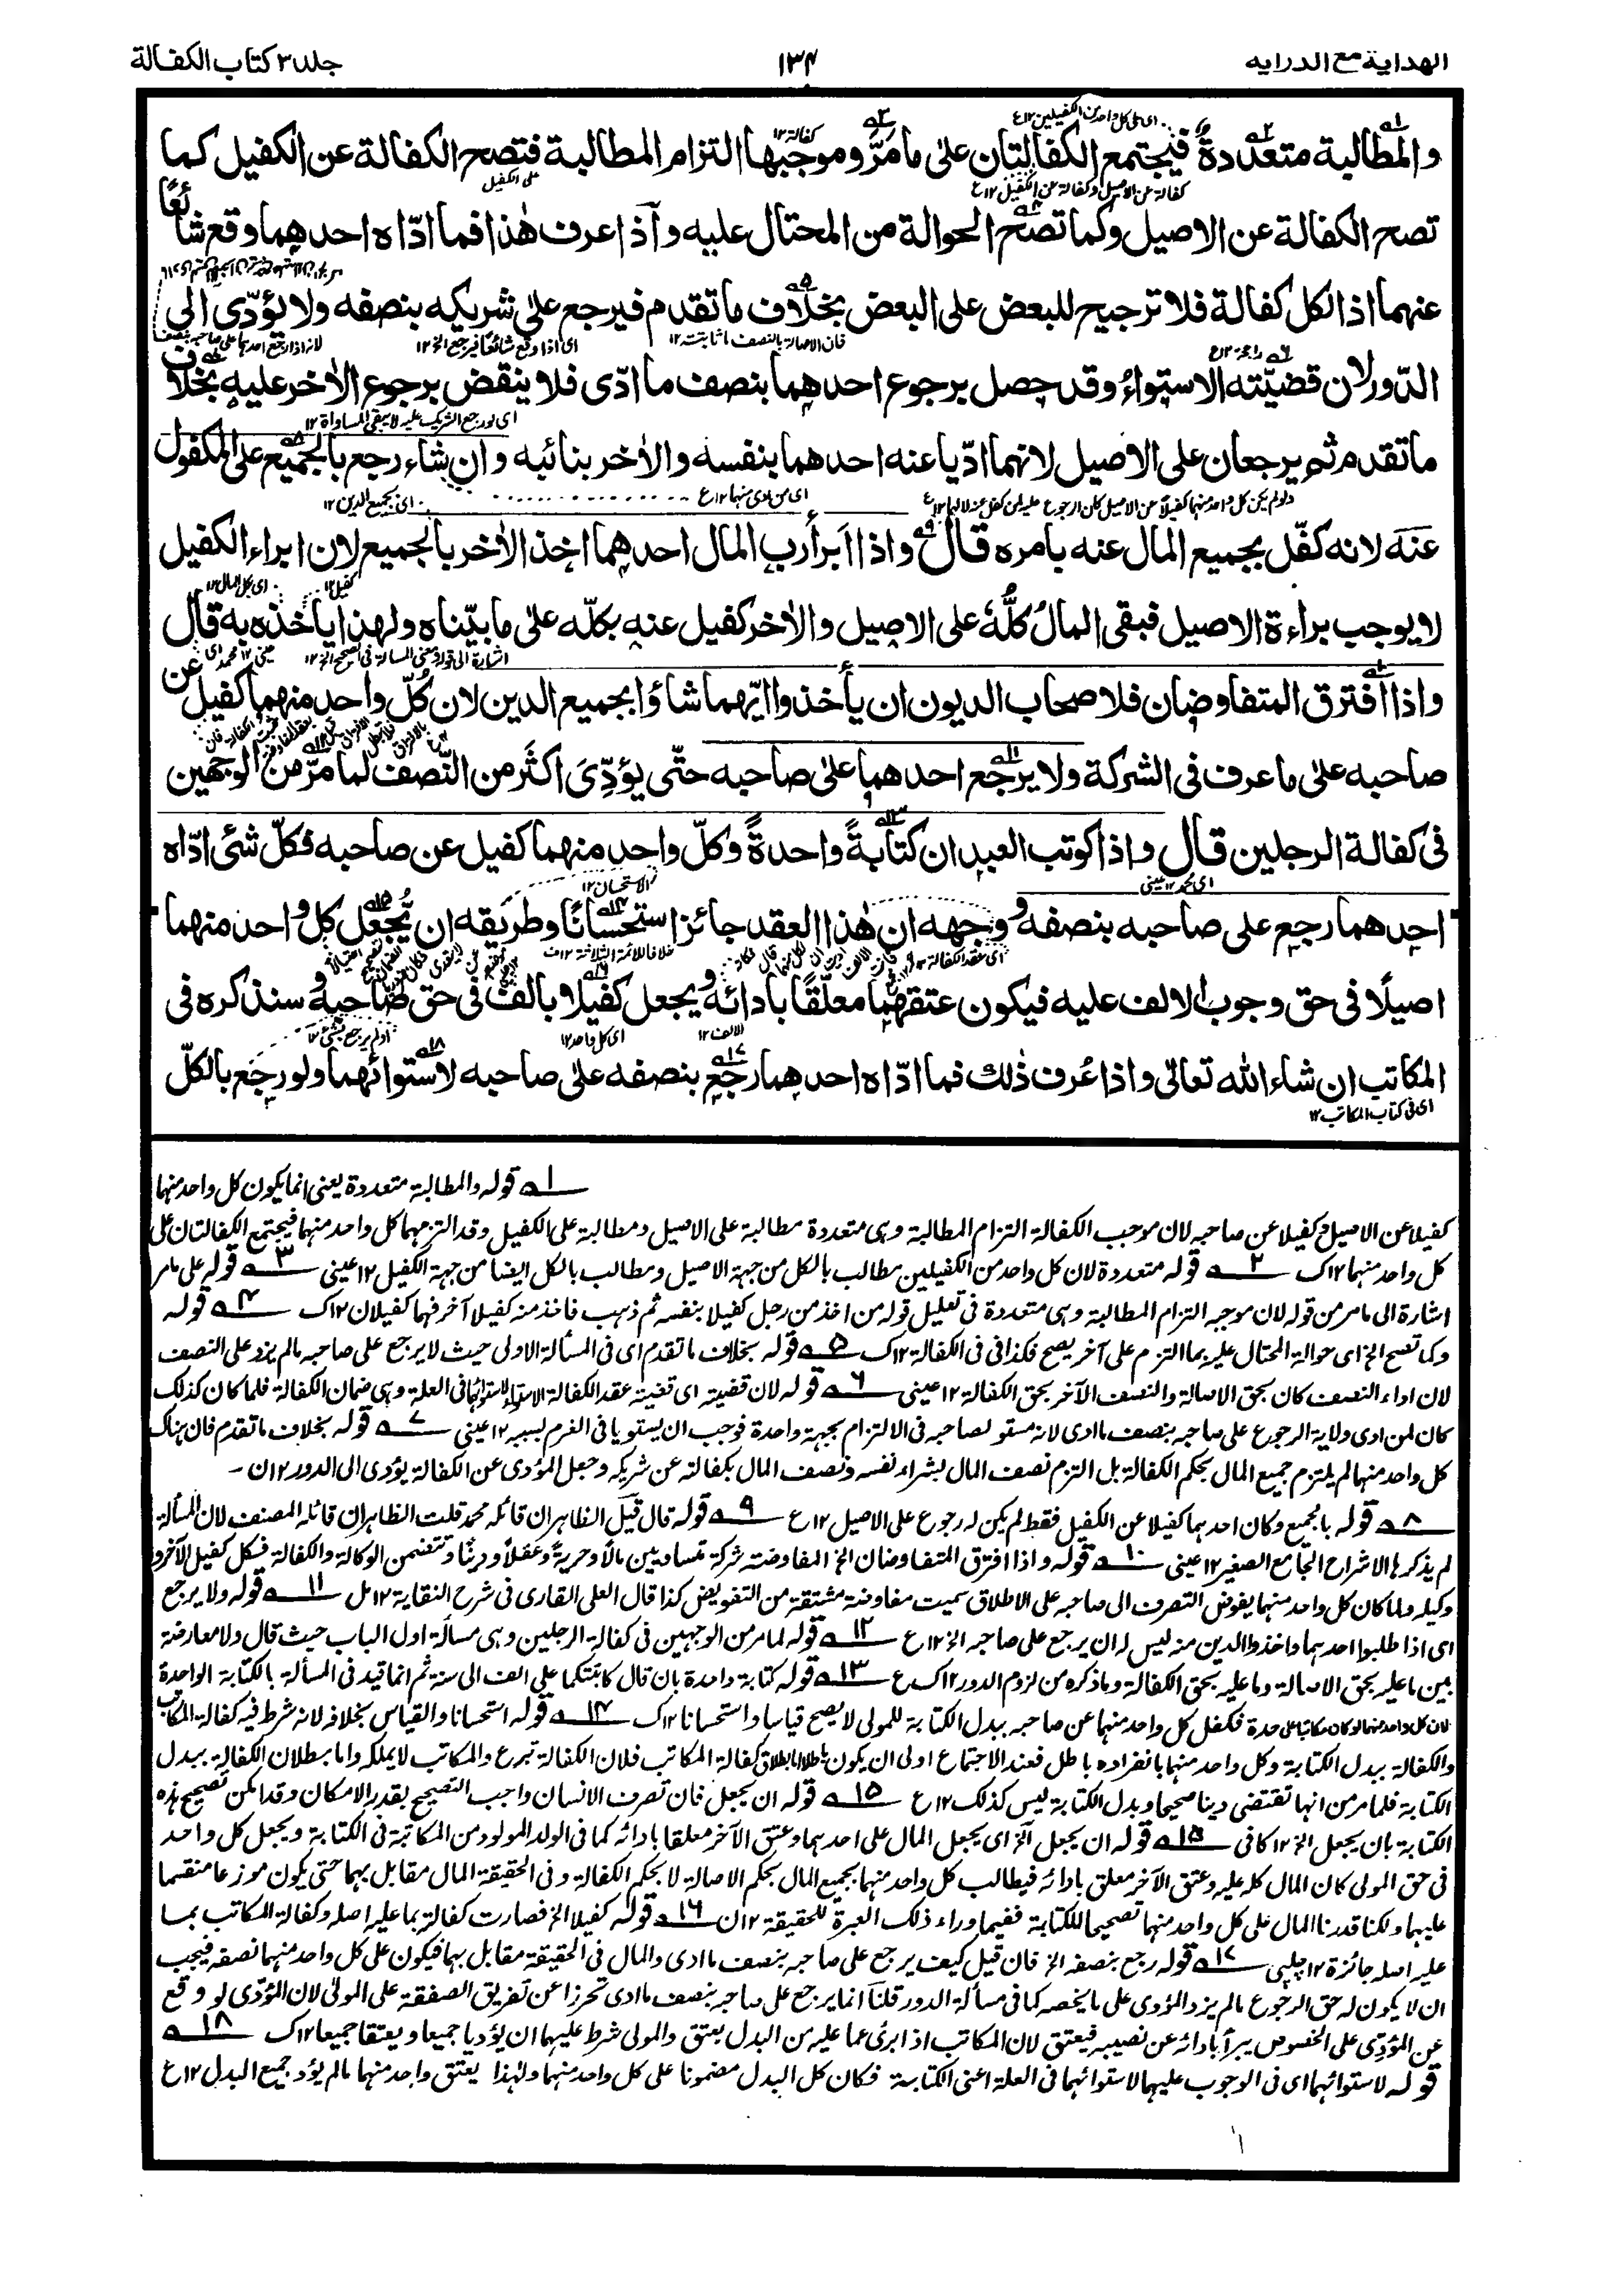 الهداية مع الدرايه
١٣٤
جلد ٣ كتاب الكفالة
والمطالبة متعددة فيجتمع الكفالتان على ما مَرَّ وموجبها التزام المطالبة فتصح الكفالة عن الكفيل كما
تصح الكفالة عن الاصيل وكما تصح الحوالة من المحتال عليه واذا عرف هٰذا فما ادّاه احدهما وقع شائعًا
عنهما اذ الكل كفالة فلا ترجيح للبعض على البعض بخلاف ما تقدم فيرجع على شريكه بنصفه ولا يؤدّى الى
الدّور لان قضيّته الاستواءُ وقد حصل برجوع احدهما بنصف ما ادّى فلا ينقض برجوع الاٰخر عليه بخلاف
ما تقدم ثم يرجعان على الاصيل لانهما ادّيا عنه احدهما بنفسه والاٰخر بنائبه وان شاء رجع بالجميع على المكفول
عنه لانه كفّل بجميع المال عنه بامره قال واذا ابرأ رب المال احدهما اخذ الاٰخر بالجميع لان ابراء الكفيل
لا يوجب براءة الاصيل فبقى المالُ كُلُّهٗ على الاصيل والاٰخر كفيل عنه بكلّه علىٰ ما بيّناه ولهٰذا ياخذه به قال
واذا افترق المتفاوضان فلاصحاب الديون ان يأخذوا ايّهما شاؤا بجميع الدين لان كُلّ واحد منهما كفيل عن
صاحبه علىٰ ما عرف فى الشركة ولا يرجع احدهما علىٰ صاحبه حتّى يؤدِّىَ اكثَر من النّصف لما مرّ من الوجهين
فى كفالة الرجلين قال واذا كوتب العبدان كتابةً واحدةً وكلّ واحد منهما كفيل عن صاحبه فكلّ شئ ادّاه
احدهما رجع على صاحبه بنصفه ووجهه ان هٰذا العقد جائز استحسانًا وطريقه ان يُّجعل كل واحد منهما
اصيلًا فى حق وجوب الالف عليه فيكون عتقهما معلّقًا بادائه ويجعل كفيلا بالالف فى حق صاحبه وسنذكره فى
المكاتب ان شاء الله تعالى واذا عُرف ذٰلك فما ادّاه احدهما رجع بنصفه علىٰ صاحبه لاستوائهما ولو رجع بالكلّ
اى فى كتاب المكاتب ١٢
١ قوله والمطالبة متعددة يعنى انما يكون كل واحد منهما
كفيلا عن الاصيل وكفيلا عن صاحبه لان موجب الكفالة التزام المطالبة وهى متعددة مطالبة على الاصيل ومطالبة على الكفيل وقد التزمهما كل واحد منهما فيجتمع الكفالتان على
كل واحد منهما ١٢ك ٢ قوله متعددة لان كل واحد من الكفيلين مطالب بالكل من جهة الاصيل ومطالب بالكل ايضا من جهة الكفيل ١٢عينى ٣ قوله على ما مر
اشارة الى ما مر من قوله لان موجبه التزام المطالبة وهى متعددة فى تعليل قوله من اخذ من رجل كفيلا بنفسه ثم ذهب فاخذ منه كفيلا آخر فهما كفيلان ١٢ك ٤ قوله
وكما تصح الخ اى حوالة المحتال عليه بما التزم على آخر يصح فكذا فى الكفالة ١٢ك ٥ قوله بخلاف ما تقدم اى فى المسألة الاولى حيث لا يرجع على صاحبه ما لم يزد على النصف
لان اداء النصف كان بحق الاصالة والنصف الآخر بحق الكفالة ١٢عينى ٦ قوله لان قضيته اى قضية عقد الكفالة الاستواء لاستوائهما فى العلة وهى ضمان الكفالة فلما كان كذلك
كان لمن ادى ولاية الرجوع على صاحبه بنصف ما ادى لانه مستو لصاحبه فى الالتزام بجهة واحدة فوجب ان يستويا فى الغرم بسببه ١٢عينى ٧ قوله بخلاف ما تقدم فان هناك
كل واحد منهما لم يلتزم جميع المال بحكم الكفالة بل التزم نصف المال بشراء نفسه ونصف المال بكفالته عن شريكه وجعل المؤدى عن الكفالة يؤدى الى الدور ١٢ن
٨ قوله بالجميع وكان احدهما كفيلا عن الكفيل فقط لم يكن له رجوع على الاصيل ١٢ع ٩ قوله قال قيل الظاهر ان قائله محمد قلت الظاهر ان قائله المصنف لان المسألة
لم يذكرها الا شراح الجامع الصغير ١٢عينى ١٠ قوله واذا افترق المتفاوضان الخ المفاوضة شركة متساويين مالًا وحريةً وعقلًا ودينًا وتتضمن الوكالة والكفالة فكل كفيل الآخر و
وكيله ولما كان كل واحد منهما يفوض التصرف الى صاحبه على الاطلاق سميت مفاوضة مشتقة من التفويض كذا قال العلى القارى فى شرح النقاية ١٢مل ١١ قوله ولا يرجع
اى اذا طلبوا احدهما واخذوا الدين منه ليس له ان يرجع على صاحبه الخ ١٢ع ١٢ قوله لما مر من الوجهين فى كفالة الرجلين وهى مسألة اول الباب حيث قال ولا معارضة
بين ما عليه بحق الاصالة وما عليه بحق الكفالة وما ذكره من لزوم الدور ١٢ك ع ١٣ قوله كتابة واحدة بان قال كاتبتكما على الف الى سنة ثم انما قيد فى المسألة بالكتابة الواحدة
لان كل واحد منهما لو كان مكاتبا على حدة فكفل كل واحد منهما عن صاحبه ببدل الكتابة للمولى لا يصح قياسا واستحسانا ١٢ك ١٤ قوله استحسانا والقياس بخلافه لانه شرط فيه كفالة المكاتب
والكفالة ببدل الكتابة وكل واحد منهما بانفراده باطل فعند الاجتماع اولى ان يكون باطلا اما بطلان كفالة المكاتب فلان الكفالة تبرع والمكاتب لا يملكه واما بطلان الكفالة ببدل
الكتابة فلما مر من انها تقتضى دينا صحيحا وبدل الكتابة ليس كذلك ١٢ع ١٥ قوله ان يجعل فان تصرف الانسان واجب التصحيح بقدر الامكان وقد امكن تصحيح هذه
الكتابة بان يجعل الخ ١٢كافى ١٥ قوله ان يجعل الخ اى يجعل المال على احدهما وعتق الآخر معلقا بادائه كما فى الولد المولود من المكاتبة فى الكتابة ويجعل كل واحد
فى حق المولى كان المال كله عليه وعتق الآخر معلق بادائه فيطالب كل واحد منهما بجميع المال بحكم الاصالة لا بحكم الكفالة وفى الحقيقة المال مقابل بهما حتى يكون موزعا منقسما
عليهما ولكنا قدرنا المال على كل واحد منهما تصحيحا للكتابة ففيما وراء ذلك العبرة للحقيقة ١٢ن ١٦ قوله كفيلا الخ فصارت كفالته بما عليه اصله وكفالة المكاتب بما
عليه اصله جائزة ١٢چلپى ١٧ قوله رجع بنصفه الخ فان قيل كيف يرجع على صاحبه بنصف ما ادى والمال فى الحقيقة مقابل بهما فيكون على كل واحد منهما نصفه فيجب
ان لا يكون له حق الرجوع ما لم يزد المؤدى على ما يخصه كما فى مسألة الدور قلنا انما يرجع على صاحبه بنصف ما ادى تحرزا عن تفريق الصفقة على المولىٰ لان المؤدّى لو وقع
عن المؤدِّى على الخصوص يبرأ بادائه عن نصيبه فيعتق لان المكاتب اذا برئ عما عليه من البدل يعتق والمولى شرط عليهما ان يؤديا جميعا ويعتقا جميعا ١٢ك ١٨
قوله لاستوائهما اى فى الوجوب عليهما لاستوائهما فى العلة اعنى الكتابة فكان كل البدل مضمونا على كل واحد منهما ولهذا يعتق واحد منهما ما لم يؤد جميع البدل ١٢ع